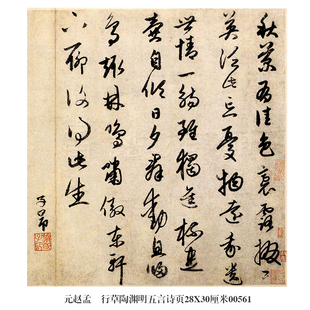 秋菊有佳色裛露掇其
英汎此忘憂物遠我遺
世情一觴雖獨進杯盡
壺自傾日夕群動息歸
鳥趨林鳴嘯傲東軒
下聊復得此生
子昂
元赵孟　行草陶渊明五言诗页28X30厘米00561